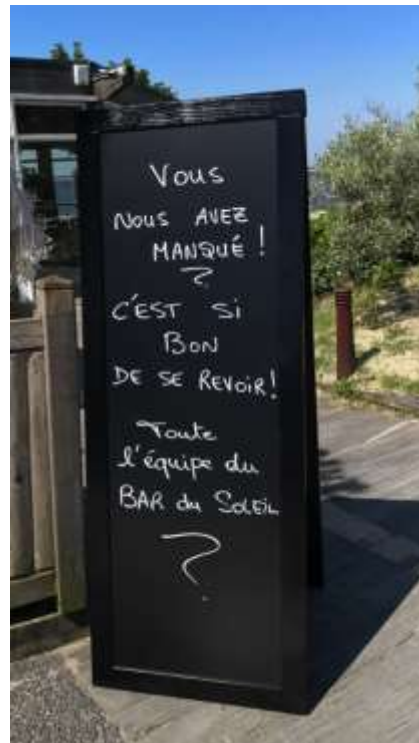 Vous
NOUS AVEZ
MANQUÉ !
?
C'EST SI
BON
DE SE REVOIR!
Toute
l'équipe du
BAR du SOLEIL
?